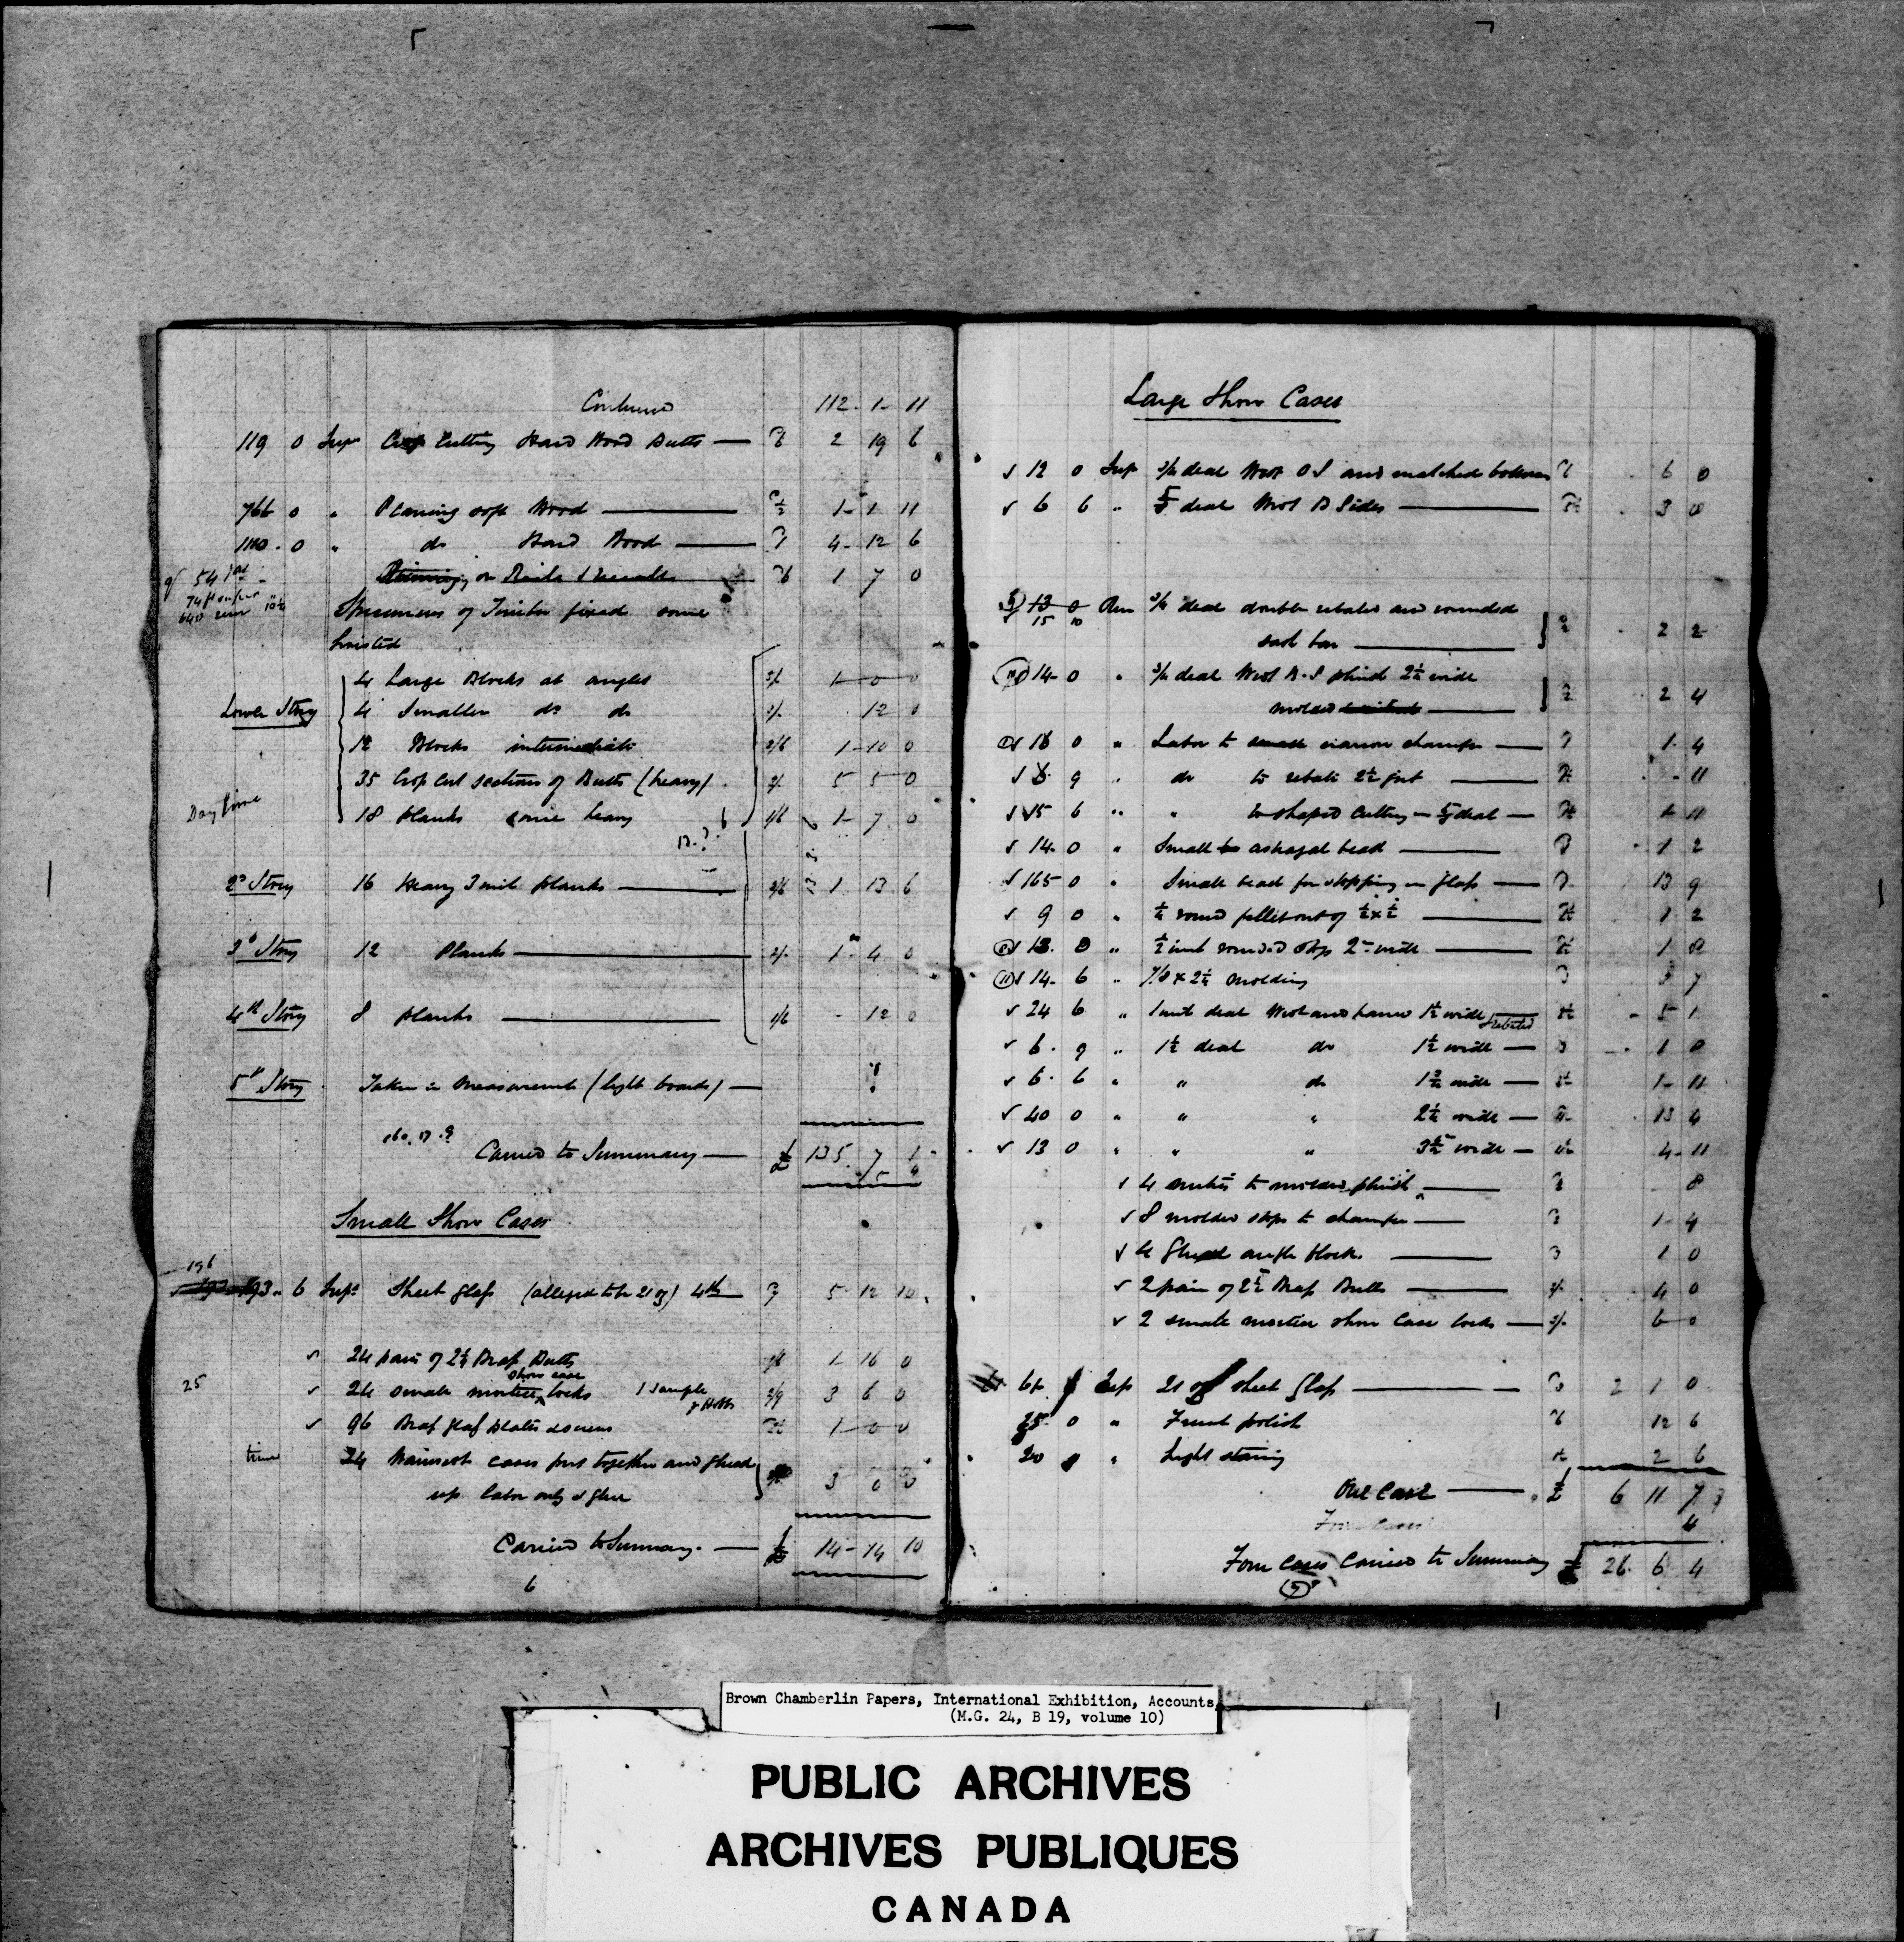 Continued 112 - 1 - 11
119 0 Supr Crop Cutting Hard Wood Butts — 2 19 6
766 0 " Planing soft Wood — 1 - 1 11
1110 - 0 " do Hard Wood — 4 - 12 6
1 7 0
Specimens of Timber fixed some
hoisted
4 Large Blocks at angles 5/- 1 - 0 0
Lower Story 4 Smaller do do 3/- 12 0
12 Blocks intermediate 2/6 1 - 10 0
35 Crop Cut sections of Butts (heavy) 3/- 5 5 0
Day time 18 planks some heavy 1/6 1 - 7 0
2d Story 16 Heavy 3 inch planks — 1 13 6
3d Story 12 Planks — 2/- 1 - 4 0
4th Story 8 planks — 1/6 - 12 0
5th Story Taken in Measurement (light boards) —
Carried to Summary — £ 135 7 1
Small Show Cases
196
193 - 6 Supr Sheet glass (alleged to be 21 oz) 5 - 12 10
24 pair of 2½ Brass Butts 1/6 1 - 16 0
show case
25 24 small mortice locks 1 sample 2/9 3 6 0
96 Brass glass plates & screws 1 - 0 0
time 24 Wainscot cases put together and glued
up labor only & glue 3 0 0
Carried to Summary — £ 14 - 14 10
6
Large Show Cases
12 0 Sup 3/4 deal Wrot O S and matched bottoms 6 0
6 6 " deal Wrot B Sides — 3 0
13 0 Run 3/4 deal double rebated and rounded
15 10
sash bar — 2 2
14 - 0 " 3/4 deal Wrot B. S plinth 2¼ wide
molded — 2 4
16 0 " Labor to narrow chamfer — 1 - 4
9 " do to rebate — - 11
15 6 " " to shaped cutting in deal — 1 - 11
14 - 0 " Small astragal bead — 1 2
165 0 " Small bead for stopping in glass — 13 9
9 0 " round fillet out of ½ x ½ — 1 2
13 - 0 " ½ inch rounded stop 2" wide — 1 8
14 - 6 " 7/8 x 2¼ molding 3 7
24 6 " 1 inch deal Wrot and framed 1½ wide rebated 5 - 1
6 - 9 " 1½ deal do 1½ wide — 1 8
6 - 6 " " do wide — 1 - 11
40 0 " " " 2½ wide — 13 4
13 0 " " " 3½ wide — 4 - 11
4 mitres to molded plinth — 8
8 molded stops to chamfer — 1 - 4
4 Glued angle blocks — 1 0
2 pair of 2½ Brass Butts — 2/- 4 0
2 small mortice show Case locks — 3/- 6 - 0
Sup 21 oz sheet glass — 2 1 0
25 0 " French polish 12 6
20 " Light staining 2 6
One Case — £ 6 11 7
Four Cases 4
Four Cases Carried to Summary £ 26 - 6 4
Brown Chamberlin Papers, International Exhibition, Accounts
(M.G. 24, B 19, volume 10)
PUBLIC ARCHIVES
ARCHIVES PUBLIQUES
CANADA